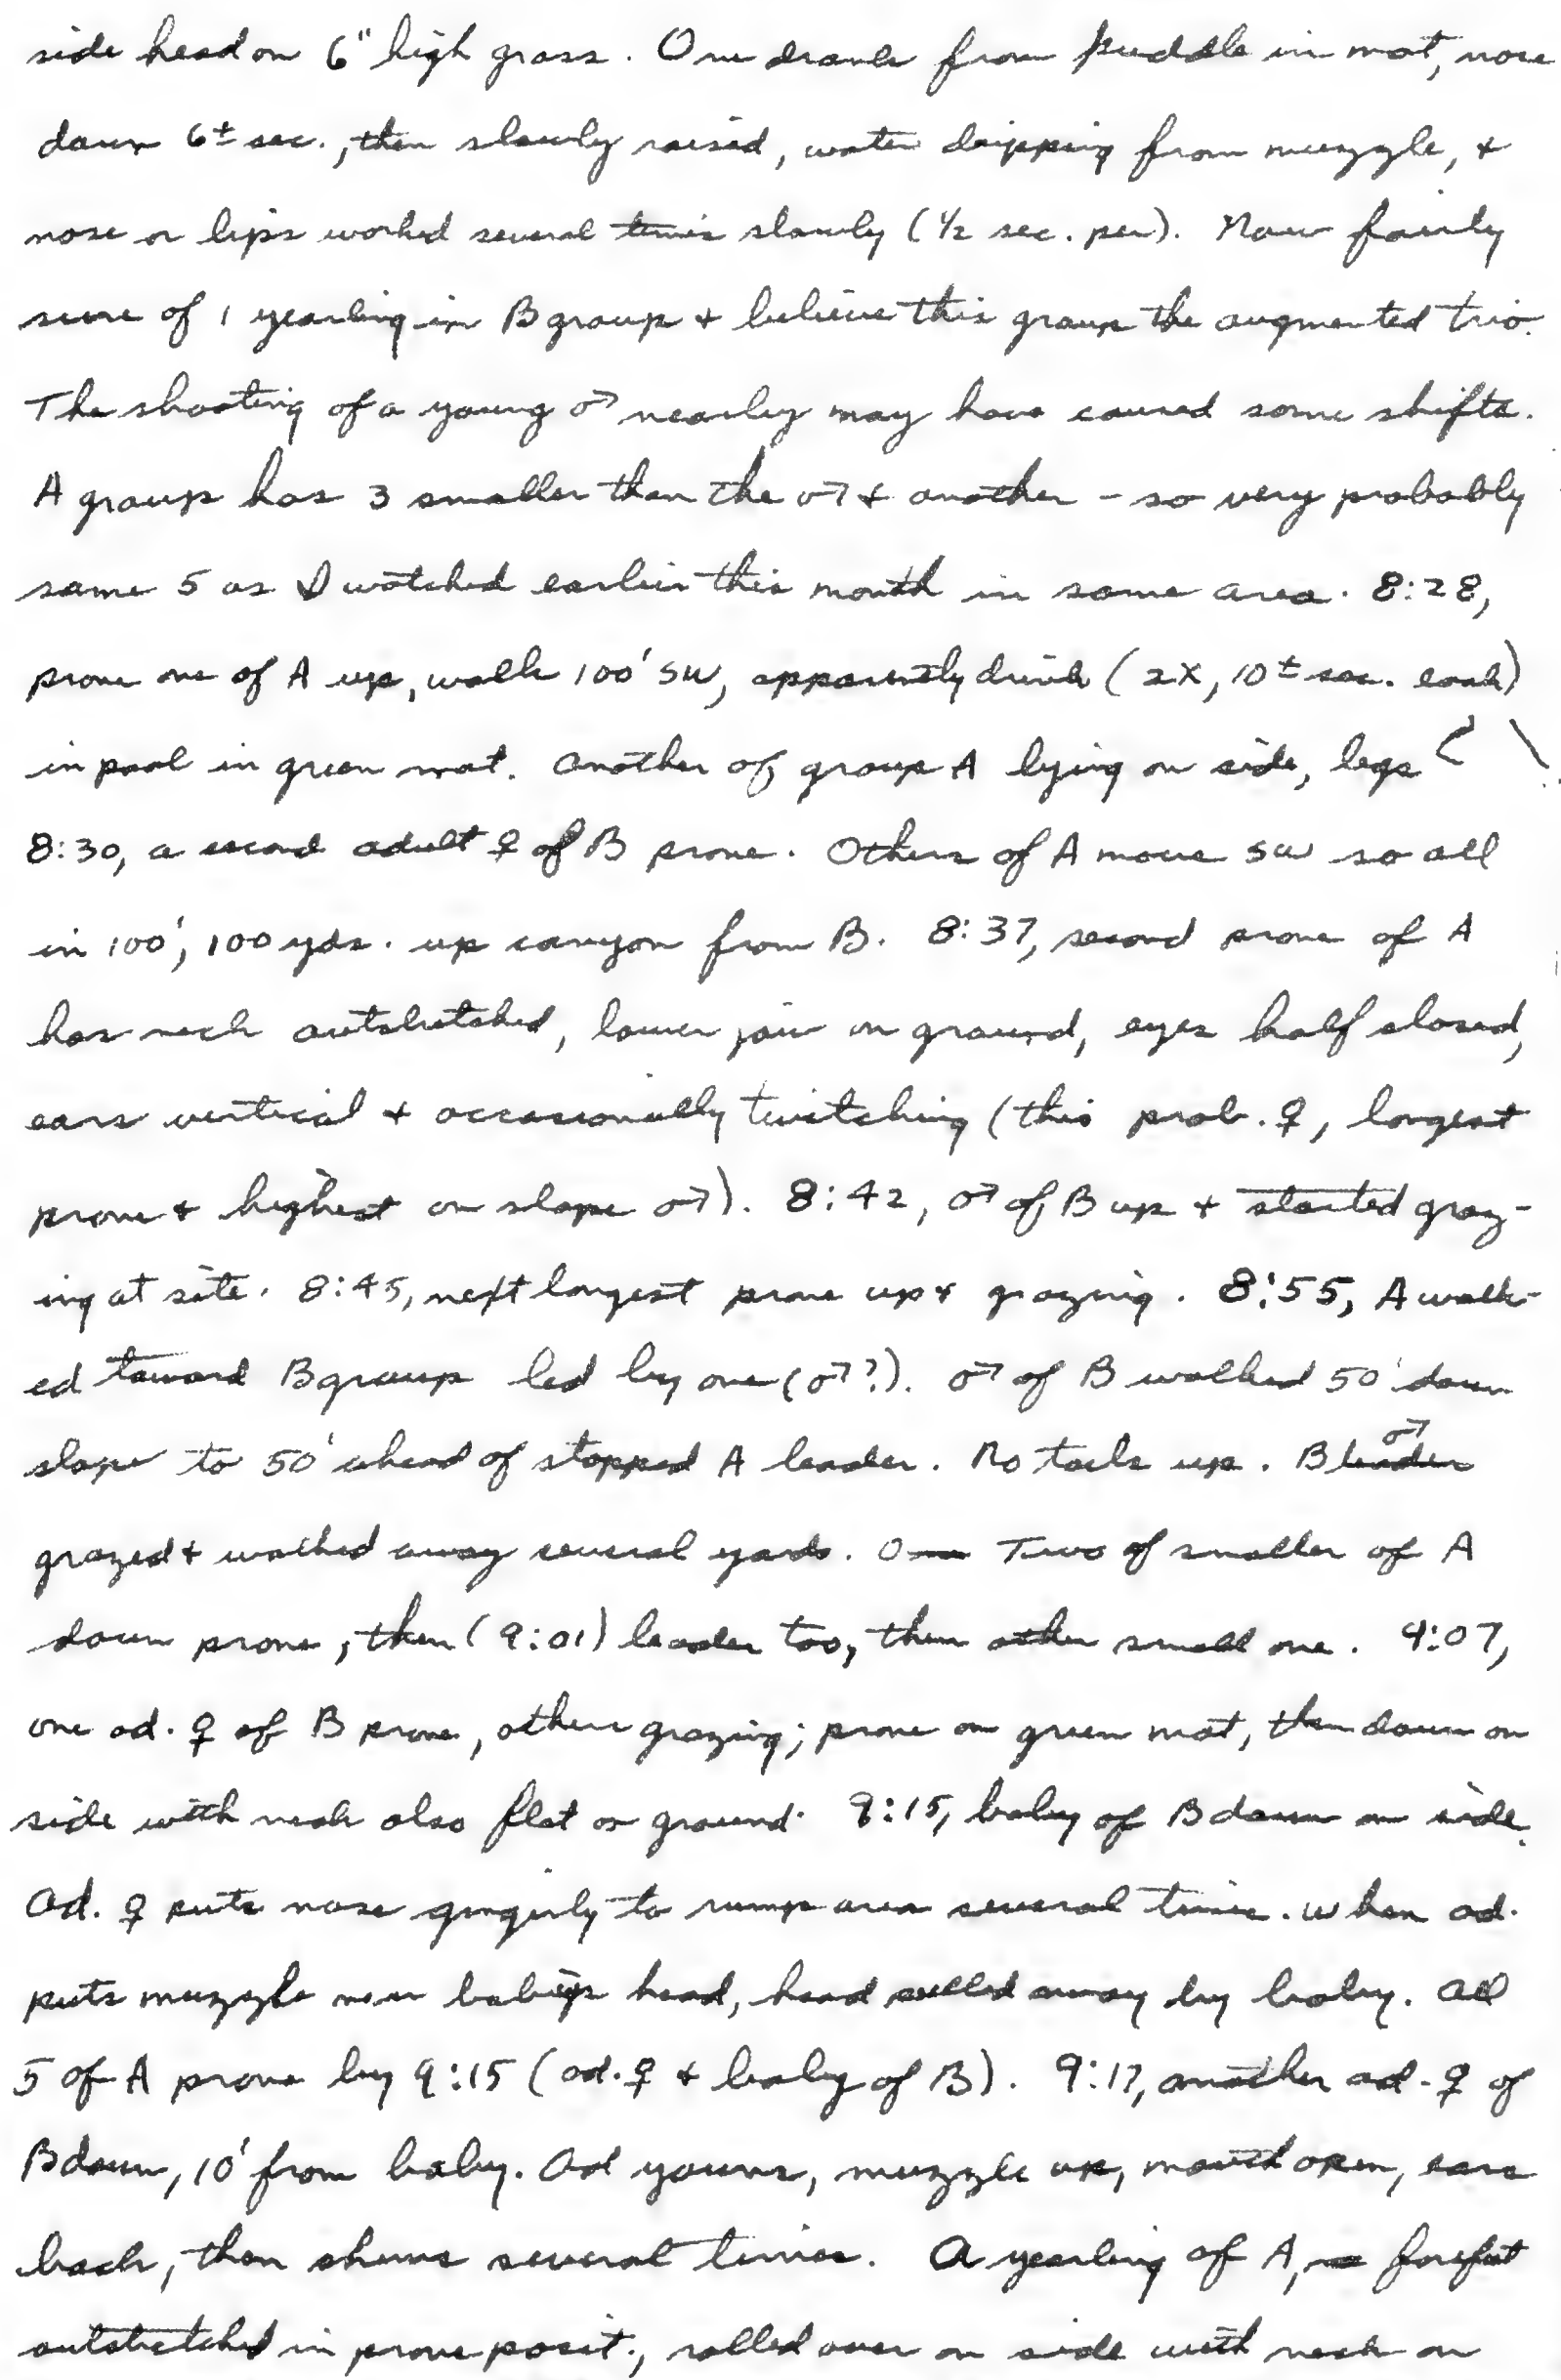 side head on 6" high grass. One drank from puddle in mat, nose
down 6± sec., then slowly raised, water dripping from muzzle, +
nose or lips worked several times slowly (1/2 sec. per). Now fairly
sure of 1 yearling in B group + believe this group the augmented trio.
The shooting of a young ♂ nearby may have caused some shifts.
A group has 3 smaller than the ♂ + another - so very probably
same 5 as I watched earlier this month in same area. 8:28,
prone one of A up, walk 100' SW, apparently drink (2X, 10± sec. each)
in pool in green mat. Another of group A lying on side, legs
8:30, a second adult ♀ of B prone. Others of A move SW so all
in 100', 100 yds. up canyon from B. 8:37, second prone of A
has neck outstretched, lower jaw on ground, eyes half closed,
ears vertical + occasionally twitching (this prob. ♀, longest
prone + highest on slope ♂). 8:42, ♂ of B up + started graz-
ing at site. 8:45, next longest prone up + grazing. 8:55, A walk-
ed toward B group led by one (♂?). ♂ of B walked 50' down
slope to 50' ahead of stopped A leader. No tails up. B leader ♂
grazed + walked away several yards. One Two of smaller of A
down prone, then (9:01) leader too, then other small one. 9:07,
one ad. ♀ of B prone, others grazing; prone on green mat, then down on
side with neck also flat on ground. 9:15, baby of B down on side.
Ad. ♀ puts nose gingerly to rump area several times. When ad.
puts muzzle near baby's head, head pulled away by baby. All
5 of A prone by 9:15 (ad. ♀ + baby of B). 9:17, another ad. ♀ of
B down, 10' from baby. Ad yawns, muzzle up, mouth open, ears
back, then chews several times. A yearling of A, forefeet
outstretched in prone posit., rolled over on side with neck on